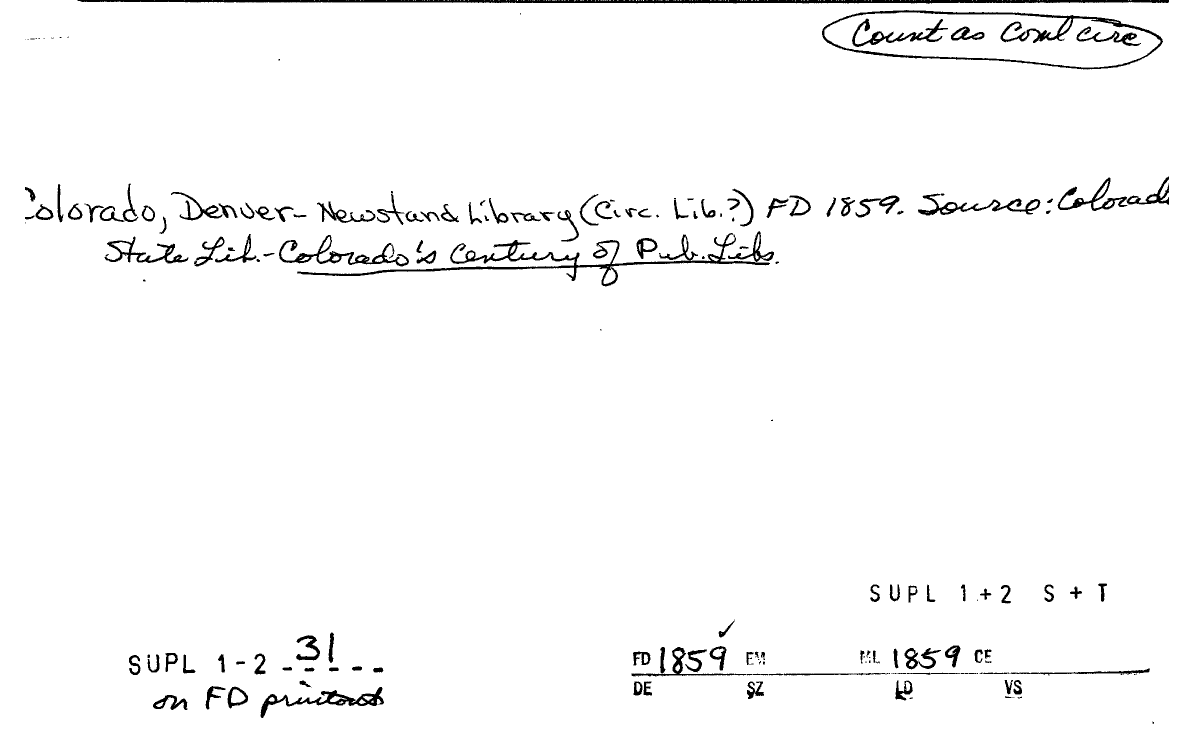 Count as Coml circ
Colorado, Denver- Newstand Library (Circ. Lib.?) FD 1859. Source: Colorado
State Lib.-Colorado's Century of Pub. Libs.
SUPL 1+2 S + T
SUPL 1-2 - 31 - -
on FD printout
FD 1859 ✓ EM ML 1859 CE
DE SZ LD VS